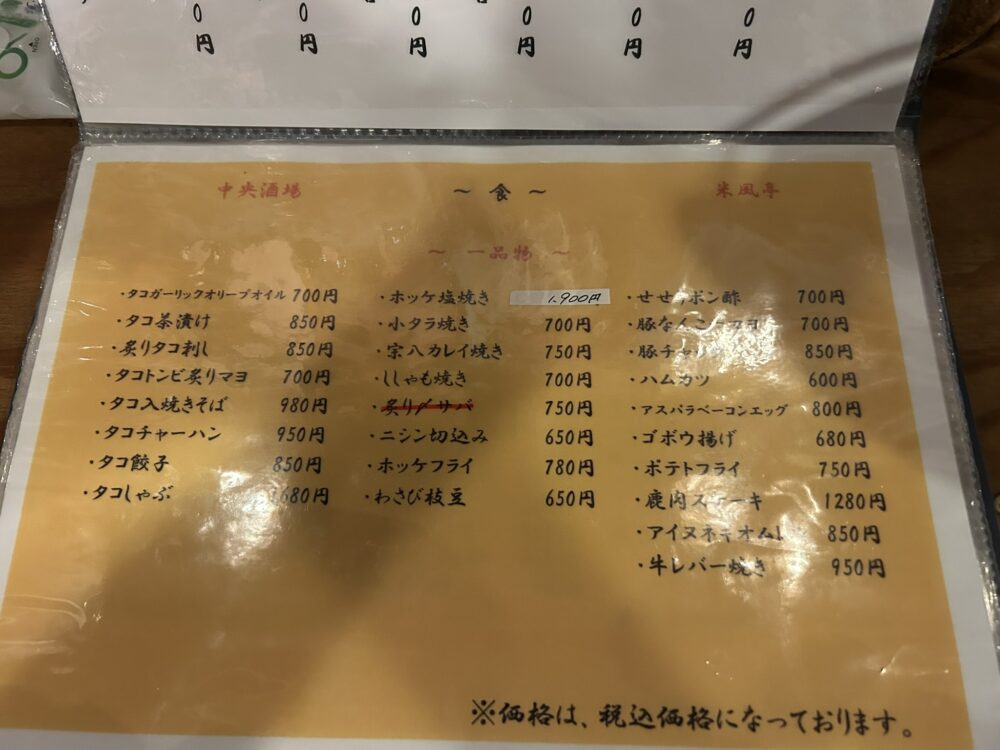 0 0 0 0 0 0
円 円 円 円 円 円
中央酒場 ～食～ 米風亭
～一品物～
・タコガーリックオリーブオイル 700円
・タコ茶漬け 850円
・炙りタコ刺し 850円
・タコトンビ炙りマヨ 700円
・タコ入焼きそば 980円
・タコチャーハン 950円
・タコ餃子 850円
・タコしゃぶ 680円
・ホッケ塩焼き 1,900円
・小タラ焼き 700円
・宗八カレイ焼き 750円
・ししゃも焼き 700円
・炙り〆サバ 750円
・ニシン切込み 650円
・ホッケフライ 780円
・わさび枝豆 650円
・せせりポン酢 700円
・豚なんこつ 700円
・豚チャ 850円
・ハムカツ 600円
・アスパラベーコンエッグ 800円
・ゴボウ揚げ 680円
・ポテトフライ 750円
・鹿肉ステーキ 1280円
・アイヌネギオムレ 850円
・牛レバー焼き 950円
※価格は、税込価格になっております。